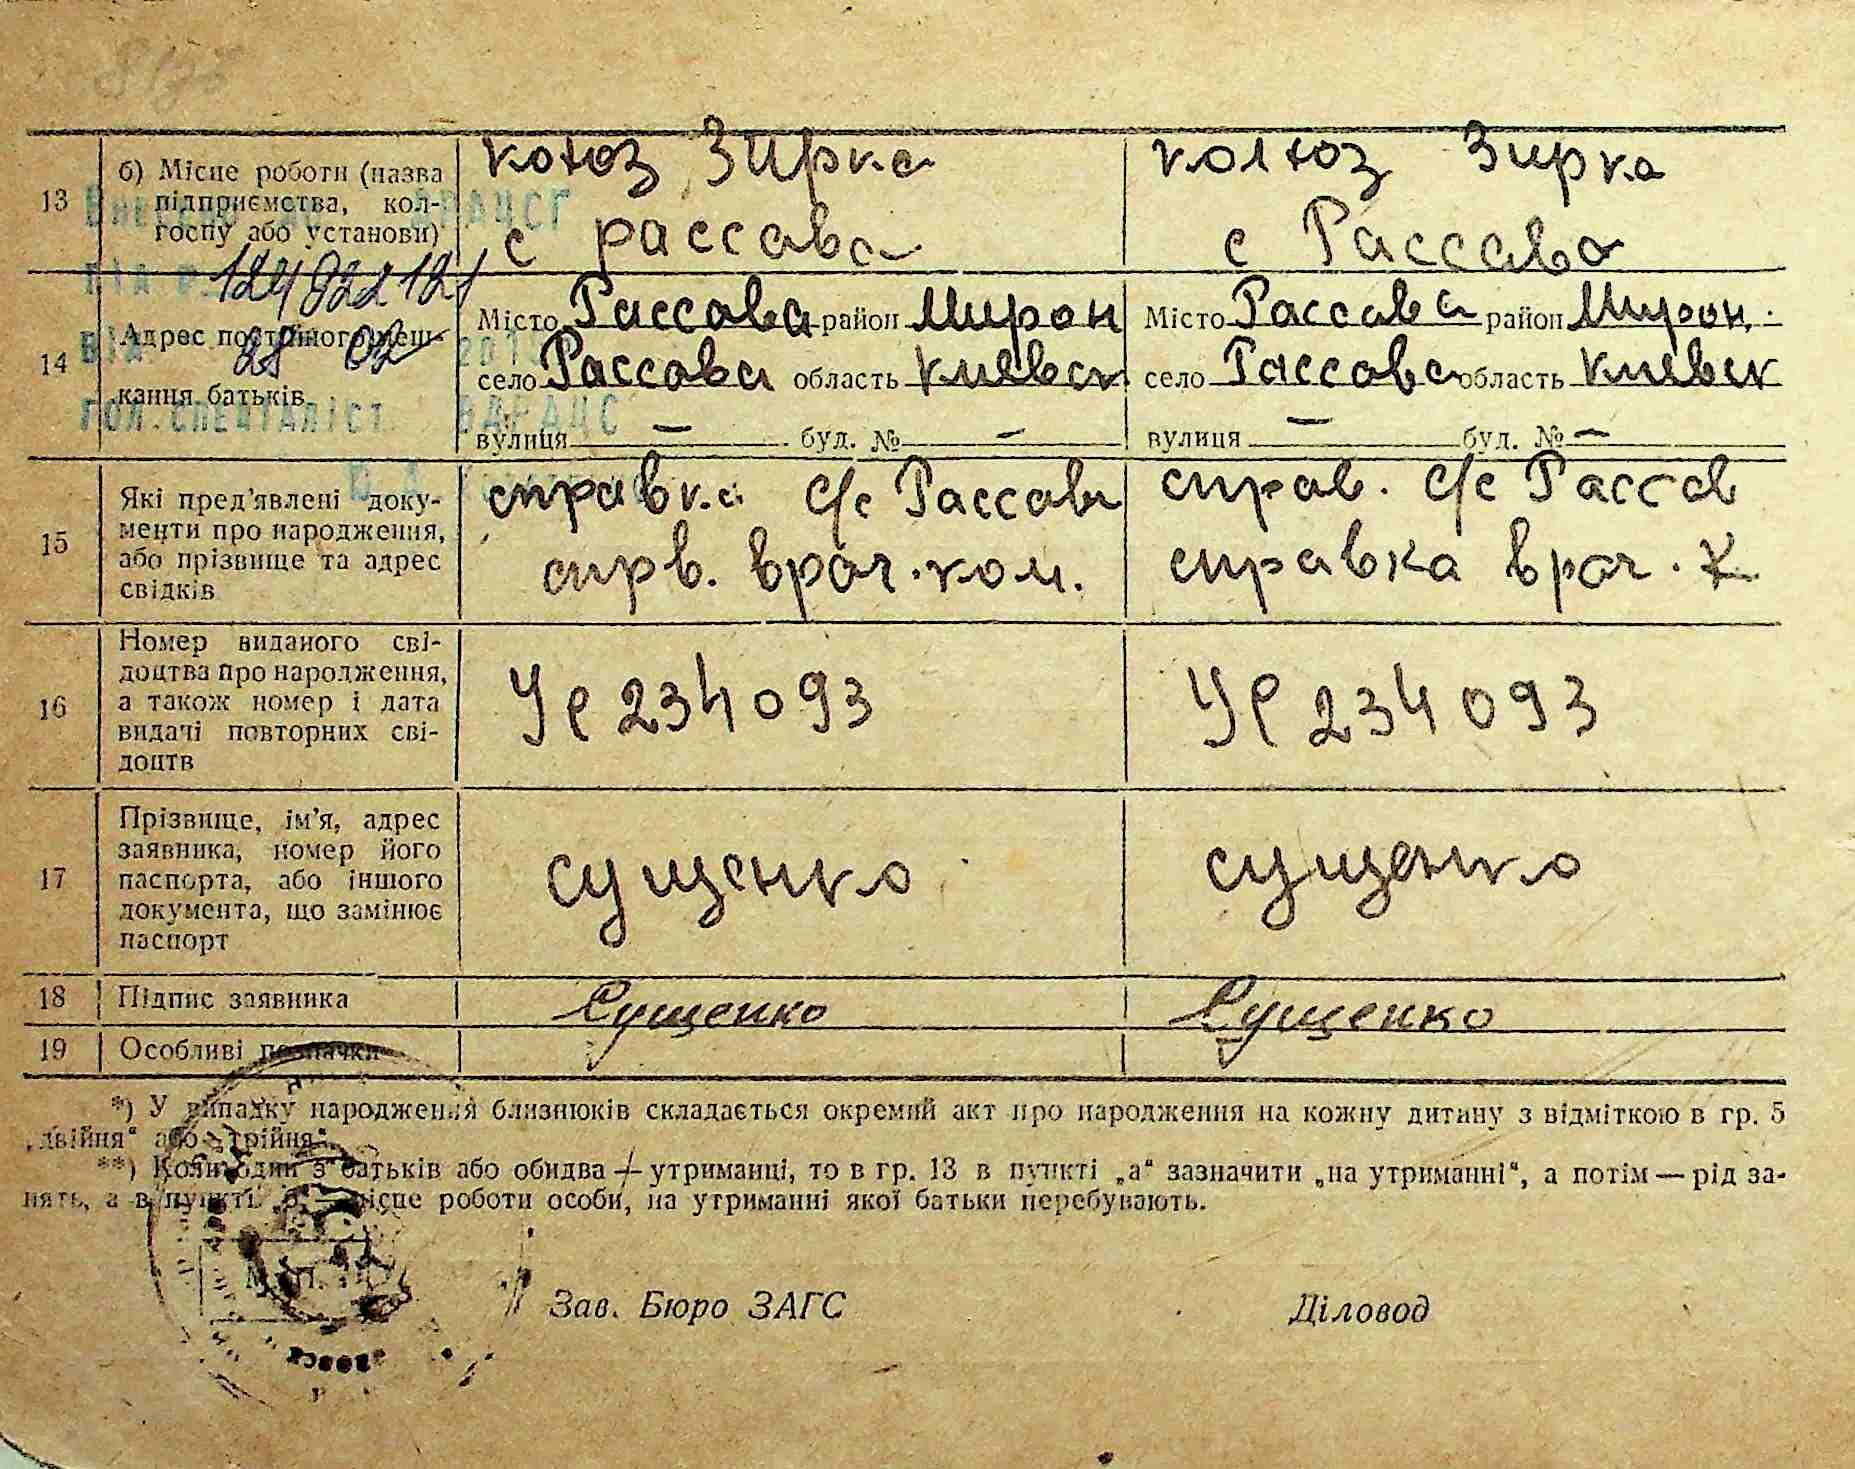 13 б) Місце роботи (назва підприємства, колгоспу або установи)
котоз Зирка колхоз Зирка
с рассава с Рассава
124822121
28 02
14 Адрес постійного мешкання батьків
Місто Рассава район Мирон Місто Рассава район Мирон.
село Рассава область Киевск село Рассава область Киевск
вулиця — буд. № — вулиця — буд. № —
15 Які пред'явлені документи про народження, або прізвище та адрес свідків
справка с/с Рассави справ. с/с Рассав
спрв. врач. ком. справка врач. К
16 Номер виданого свідоцтва про народження, а також номер і дата видачі повторних свідоцтв
УС 234093 УС 234093
17 Прізвище, ім'я, адрес заявника, номер його паспорта, або іншого документа, що замінює паспорт
сущенко сущенко
18 Підпис заявника Сущенко Сущенко
19 Особливі позначки
*) У випадку народження близнюків складається окремий акт про народження на кожну дитину з відміткою в гр. 5
„двійня“ або „трійня“.
**) Коли один з батьків або обидва — утриманці, то в гр. 13 в пункті „а“ зазначити „на утриманні“, а потім — рід за-
нять, а в пункті „б“ — місце роботи особи, на утриманні якої батьки перебувають.
М. П.
Зав. Бюро ЗАГС Діловод